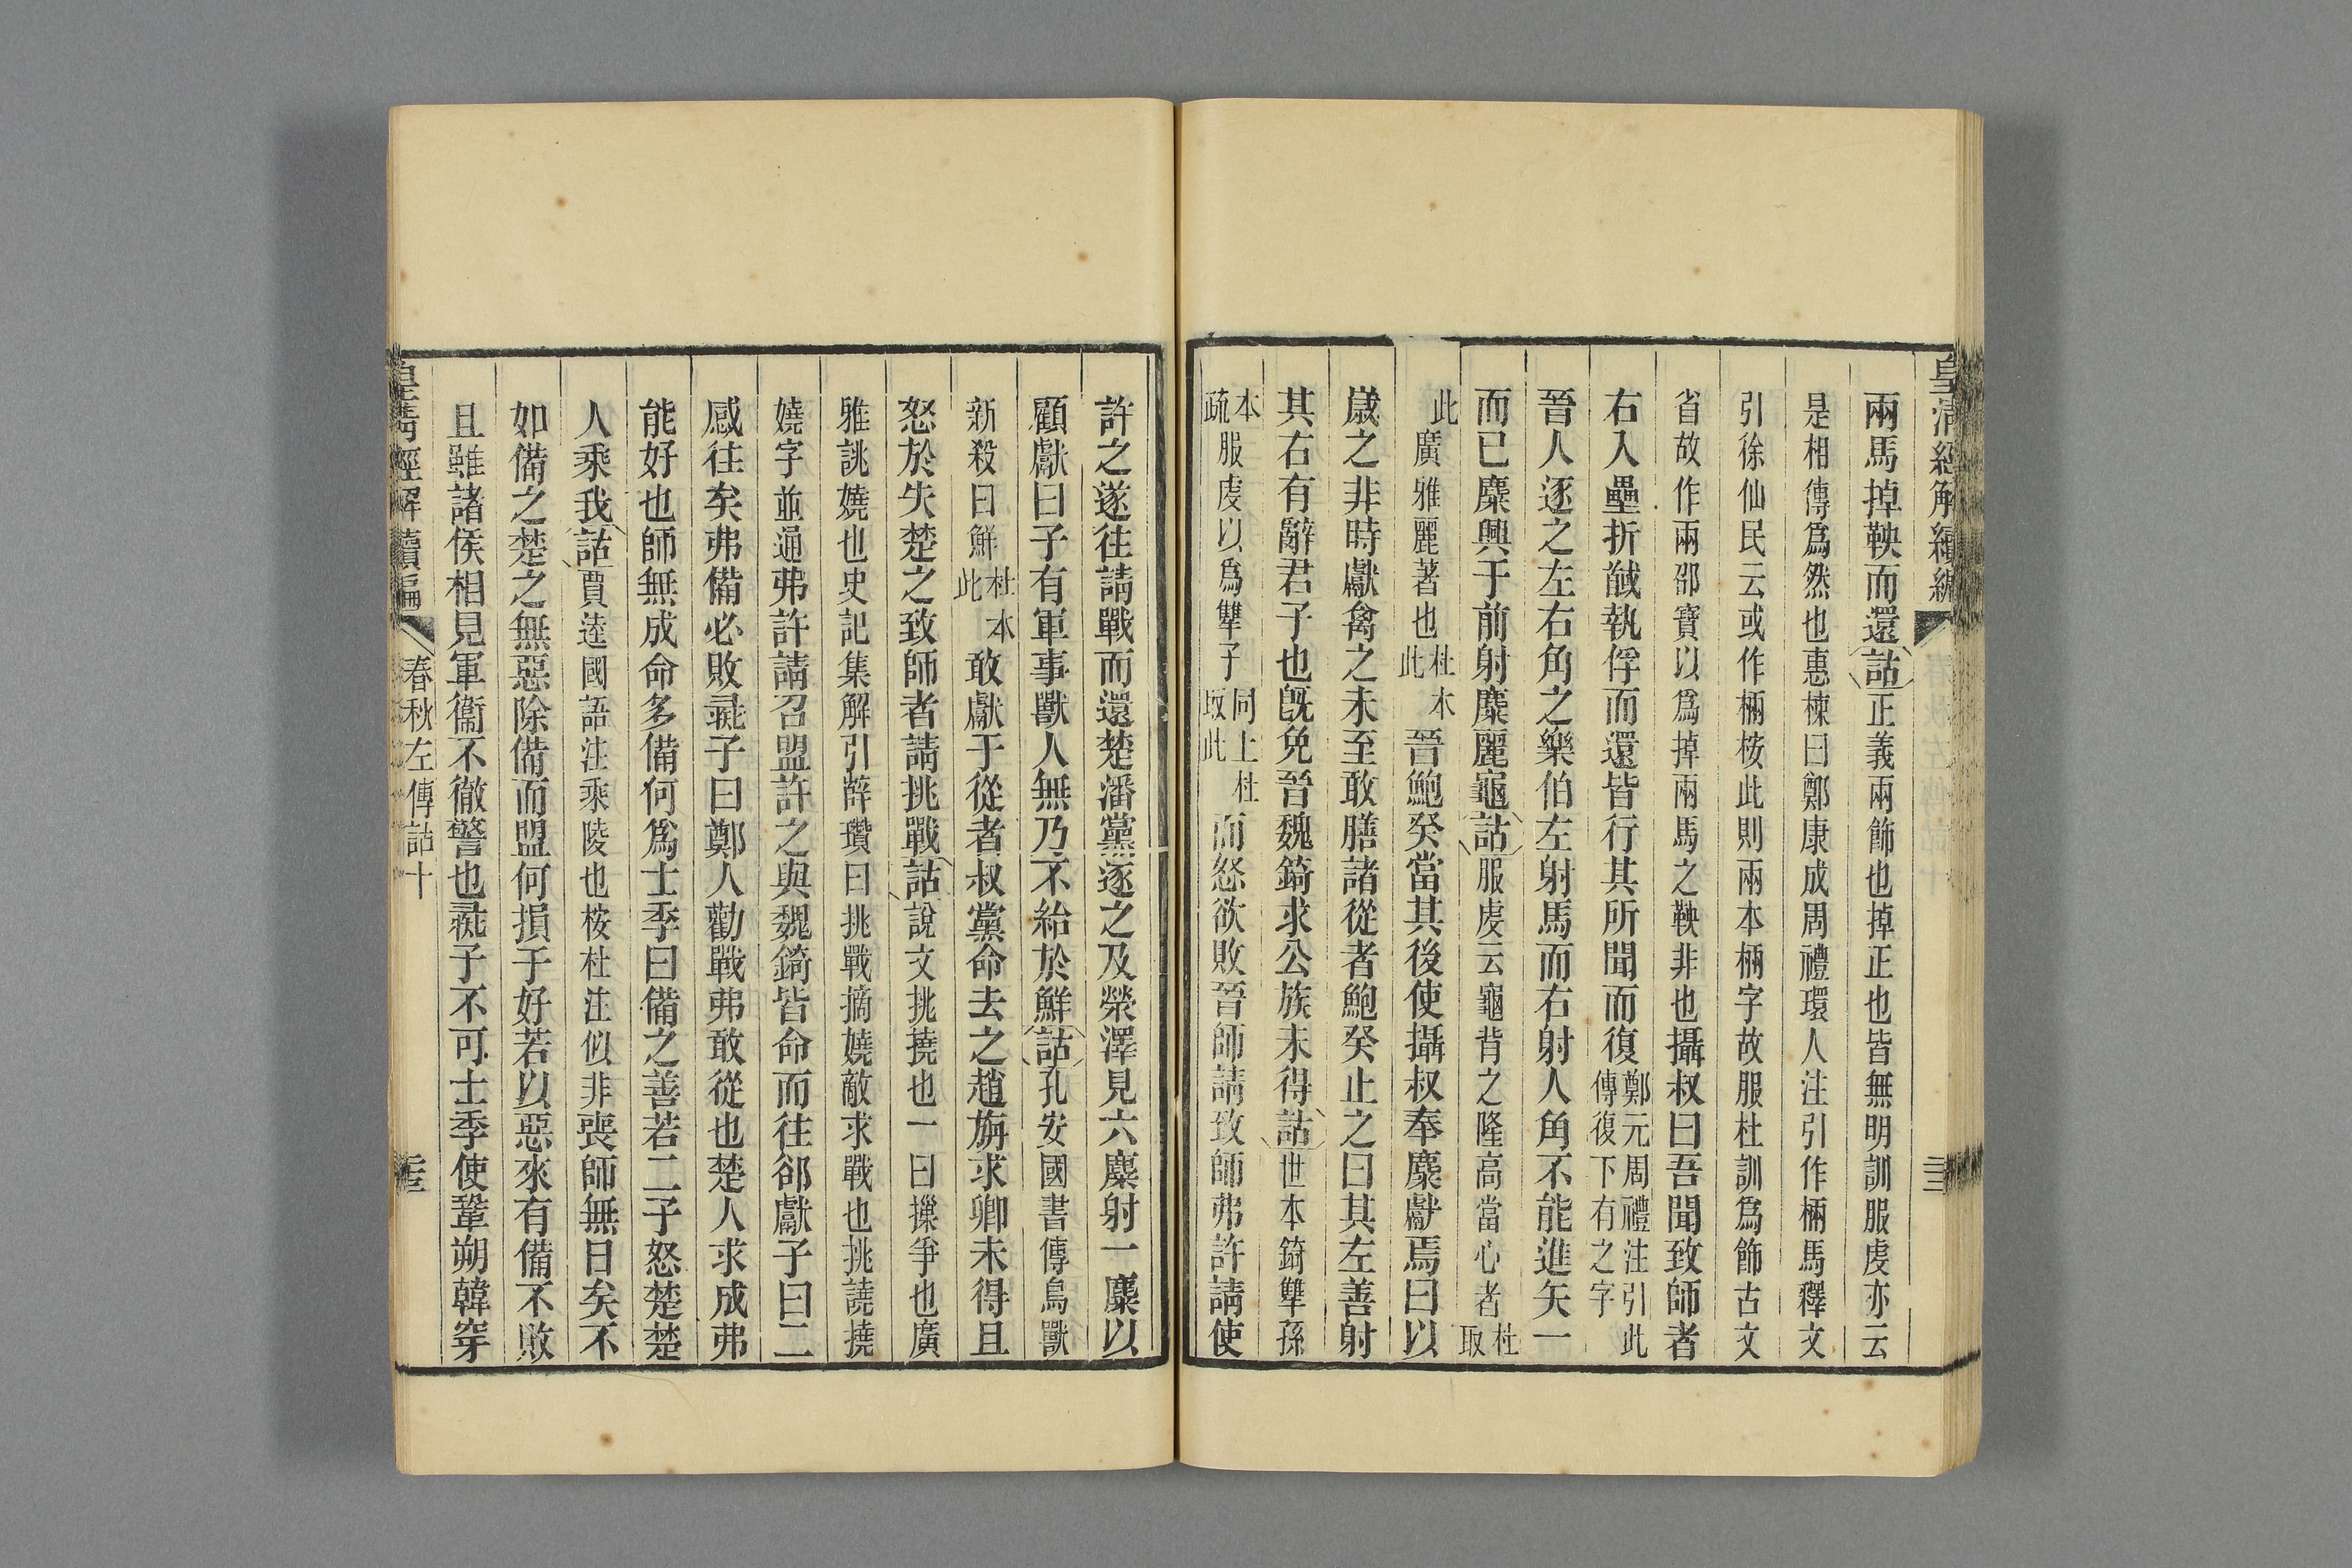 皇清經解續編
兩馬掉鞅而還詁正義兩飾也掉正也皆無明訓服虔亦云
是相傳爲然也惠棟曰鄭康成周禮環人注引作㮄馬釋文
引徐仙民云或作㮄桉此則兩本㮄字故服杜訓爲飾古文
省故作兩邵寶以爲掉兩馬之鞅非也攝叔曰吾聞致師者
右入壘折馘執俘而還皆行其所聞而復鄭元周禮注引此傳復下有之字
晉人逐之左右角之樂伯左射馬而右射人角不能進矢一
而已麋興于前射麋麗龜詁服虔云龜背之隆高當心者杜取
此廣雅麗著也杜本此晉鮑癸當其後使攝叔奉麋獻焉曰以
歲之非時獻禽之未至敢膳諸從者鮑癸止之曰其左善射
其右有辭君子也旣免晉魏錡求公族未得詁世本錡犨孫
本疏服虔以爲犨子同上杜取此而怒欲敗晉師請致師弗許請使
許之遂往請戰而還楚潘黨逐之及滎澤見六麋射一麋以
顧獻曰子有軍事獸人無乃不給於鮮詁孔安國書傳鳥獸
新殺曰鮮杜本此敢獻于從者叔黨命去之趙旃求卿未得且
怒於失楚之致師者請挑戰詁說文挑撓也一曰摷爭也廣
雅誂嬈也史記集解引薛瓚曰挑戰擿嬈敵求戰也挑譊撓
嬈字並通弗許請召盟許之與魏錡皆命而往郤獻子曰二
感往矣弗備必敗彘子曰鄭人勸戰弗敢從也楚人求成弗
能好也師無成命多備何爲士季曰備之善若二子怒楚楚
人乘我詁賈逵國語注乘陵也桉杜注似非喪師無日矣不
如備之楚之無惡除備而盟何損于好若以惡來有備不敗
且雖諸侯相見軍衞不徹警也彘子不可士季使鞏朔韓穿
皇淸經解續編 春秋左傳詁十